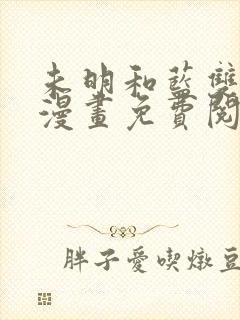 未明和藍雙
漫畫免費閱
胖子愛喫燉豆